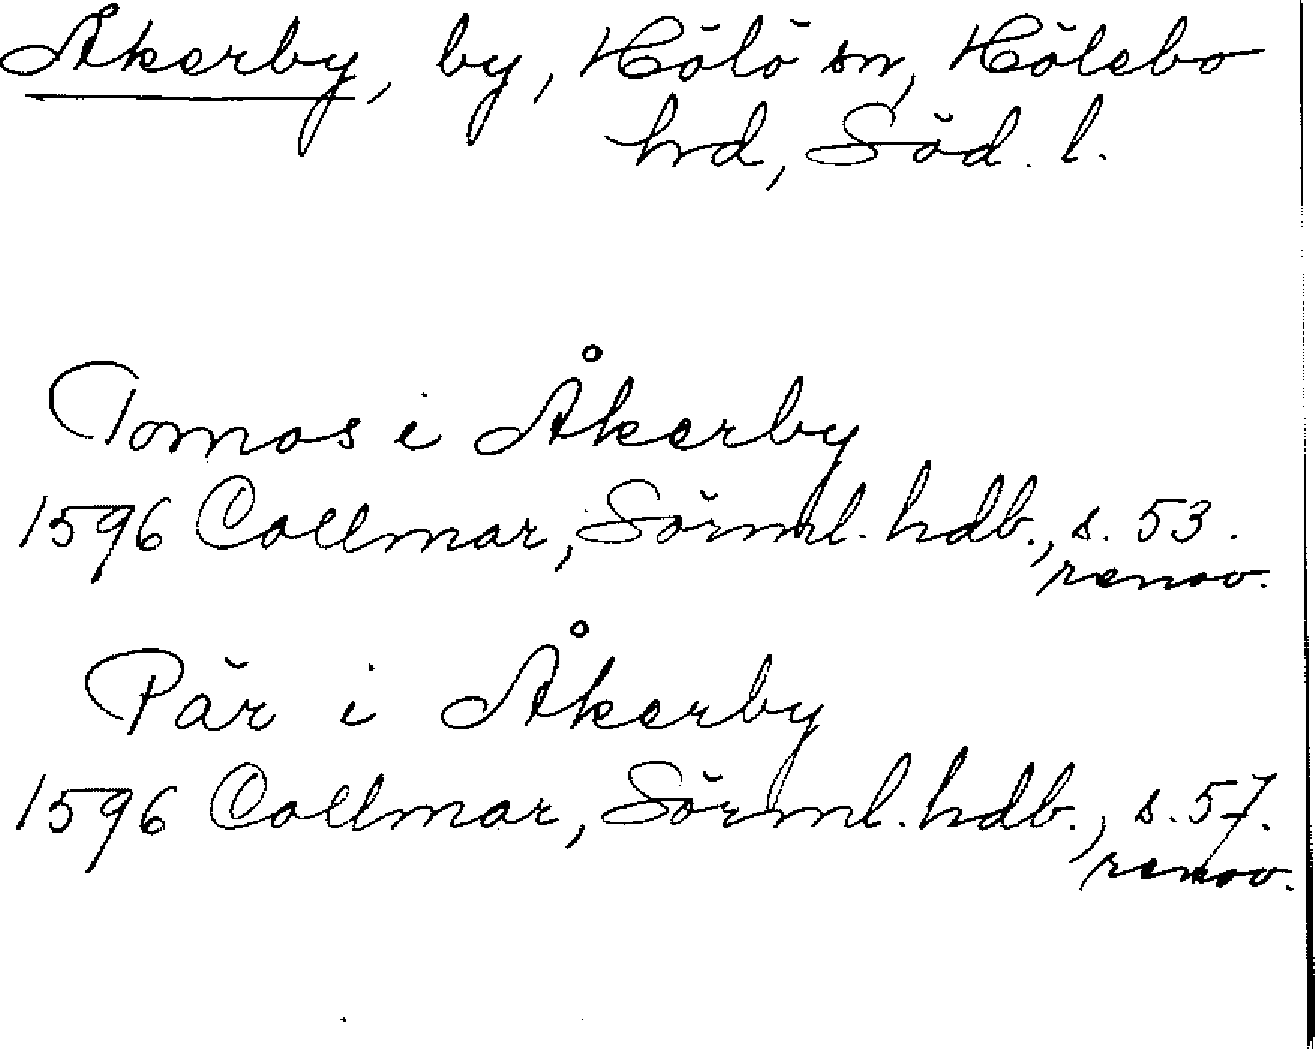 Åkerby, by, Hölö sn, Hölebo
hrd, Söd. l.
Tomas i Åkerby
1596 Collmar, Sörml. hdb., s. 53.
renov.
Pär i Åkerby
1596 Collmar, Sörml. hdb., s. 57.
renov.